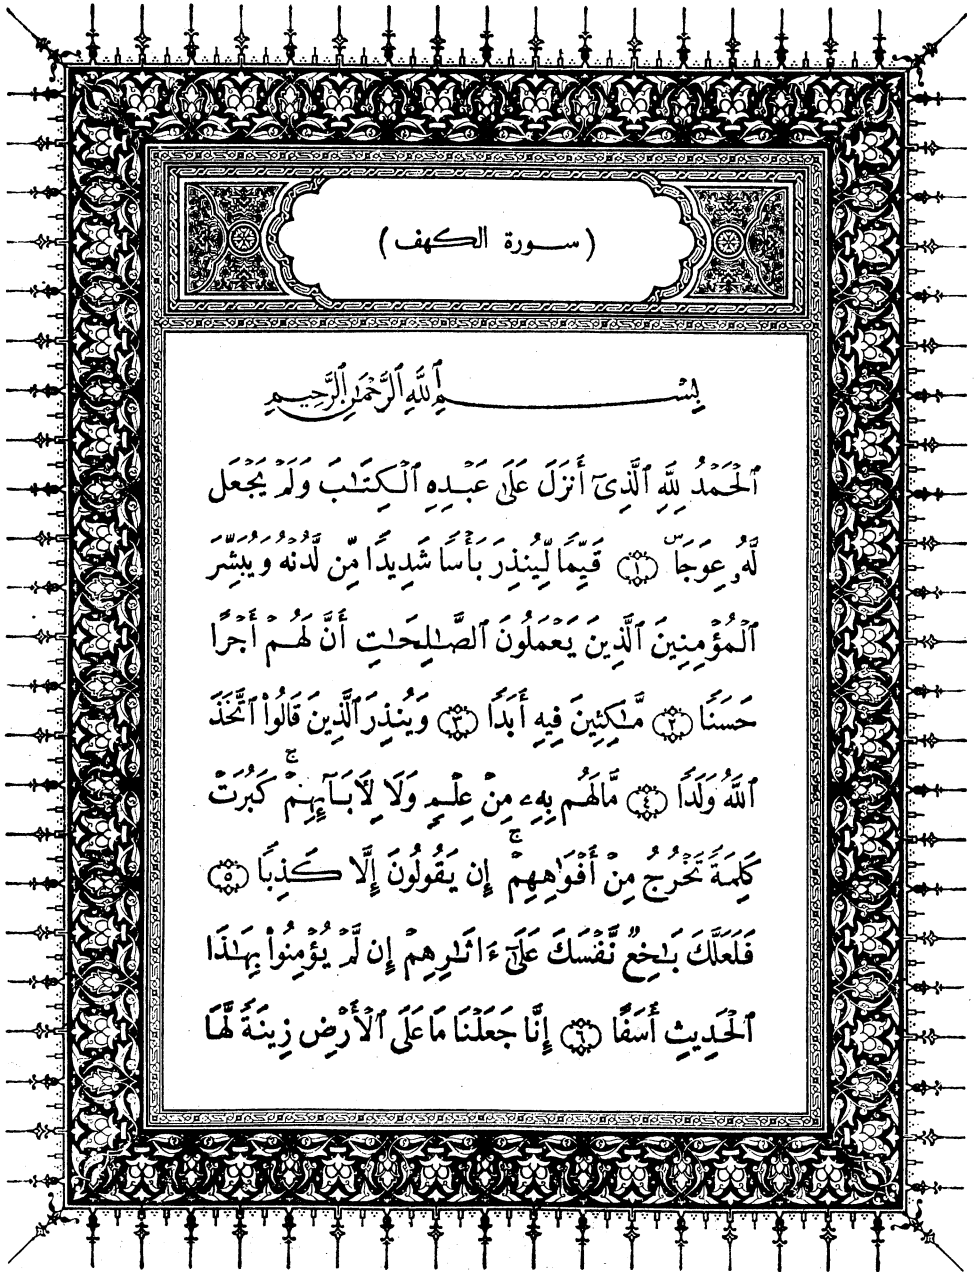 ( سورة الكهف )
بِسْمِ ٱللَّهِ ٱلرَّحْمَٰنِ ٱلرَّحِيمِ
ٱلْحَمْدُ لِلَّهِ ٱلَّذِىٓ أَنزَلَ عَلَىٰ عَبْدِهِ ٱلْكِتَٰبَ وَلَمْ يَجْعَل
لَّهُۥ عِوَجَاۜ ﴿١﴾ قَيِّمًا لِّيُنذِرَ بَأْسًا شَدِيدًا مِّن لَّدُنْهُ وَيُبَشِّرَ
ٱلْمُؤْمِنِينَ ٱلَّذِينَ يَعْمَلُونَ ٱلصَّٰلِحَٰتِ أَنَّ لَهُمْ أَجْرًا
حَسَنًا ﴿٢﴾ مَّٰكِثِينَ فِيهِ أَبَدًا ﴿٣﴾ وَيُنذِرَ ٱلَّذِينَ قَالُوا۟ ٱتَّخَذَ
ٱللَّهُ وَلَدًا ﴿٤﴾ مَّا لَهُم بِهِۦ مِنْ عِلْمٍ وَلَا لِأَبَآئِهِمْ ۚ كَبُرَتْ
كَلِمَةً تَخْرُجُ مِنْ أَفْوَٰهِهِمْ ۚ إِن يَقُولُونَ إِلَّا كَذِبًا ﴿٥﴾
فَلَعَلَّكَ بَٰخِعٌ نَّفْسَكَ عَلَىٰٓ ءَاثَٰرِهِمْ إِن لَّمْ يُؤْمِنُوا۟ بِهَٰذَا
ٱلْحَدِيثِ أَسَفًا ﴿٦﴾ إِنَّا جَعَلْنَا مَا عَلَى ٱلْأَرْضِ زِينَةً لَّهَا